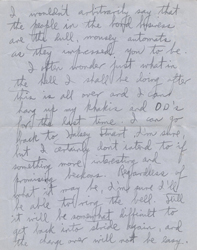 I wouldn't arbitrarily say that
the people in the book business
are the dull, mousey automats
as they impressed you to be.
I often wonder just what in
the hell I shall be doing after
this is all over and I could
hang up my khakis and OD's
for the last time. I can go
back to Halsey Street, I'm sure,
but I certainly don't intend to if
something more interesting and
promising beckons. Regardless of
what it may be, I'm sure I'll
be able to ring the bell. Still
it will be somewhat difficult to
get back into stride again, and
the change over will not be easy.